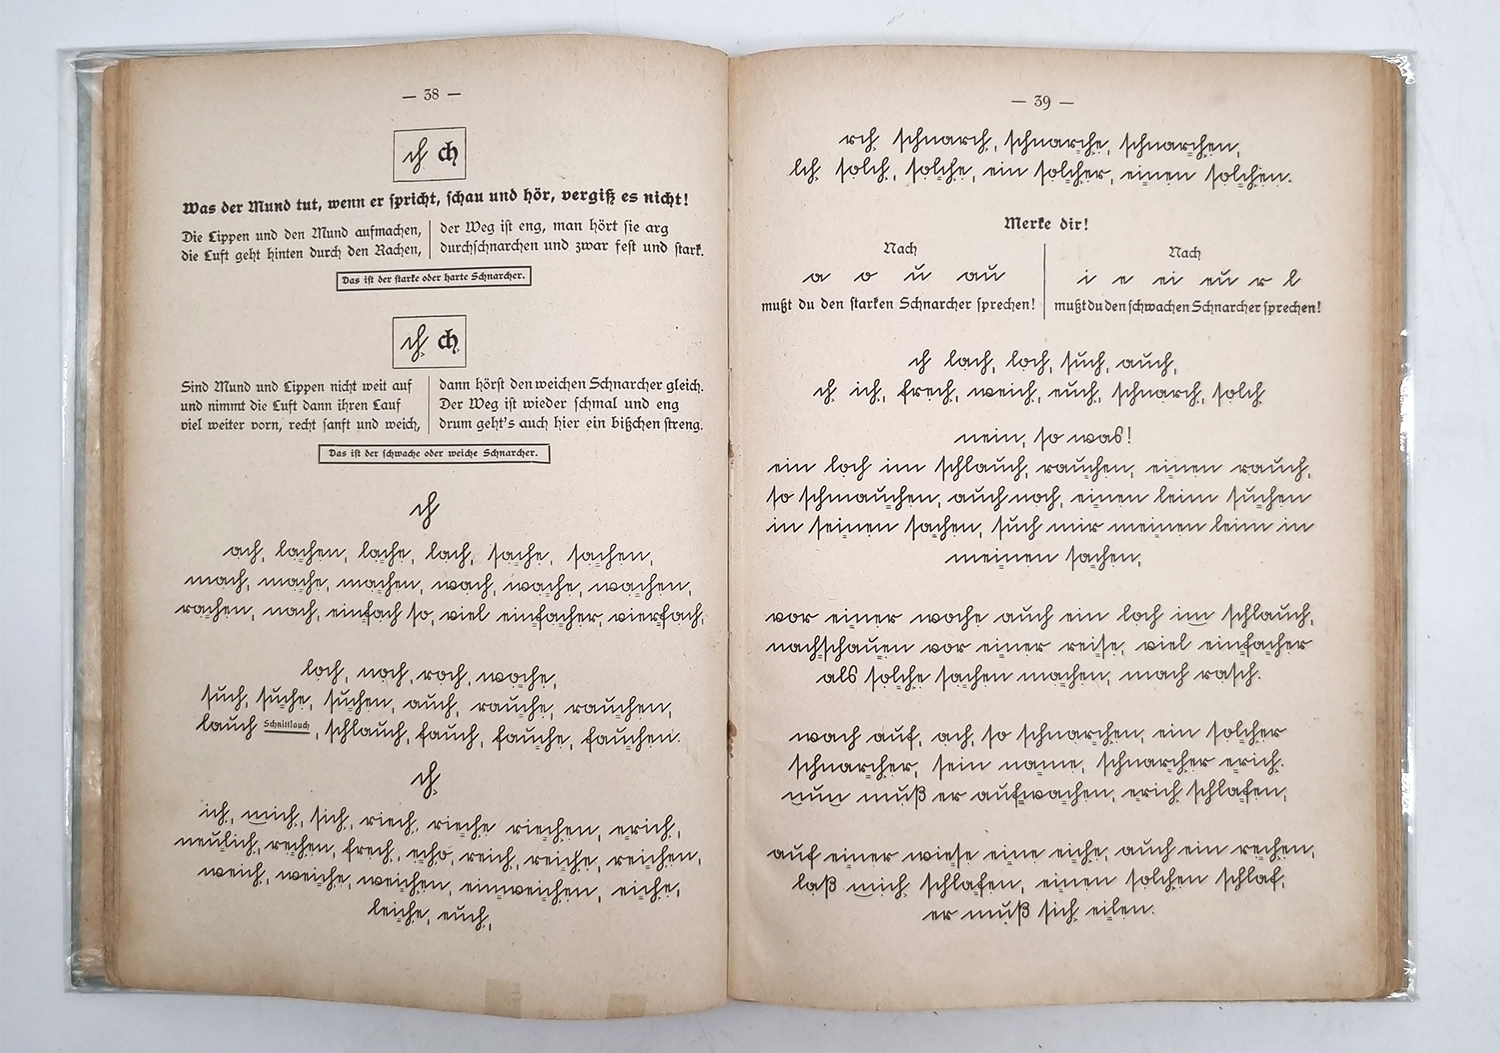 — 38 —
ch ch
Was der Mund tut, wenn er spricht, schau und hör, vergiß es nicht!
Die Lippen und den Mund aufmachen,
die Luft geht hinten durch den Rachen,
der Weg ist eng, man hört sie arg
durchschnarchen und zwar fest und stark.
Das ist der starke oder harte Schnarcher.
ch ch
Sind Mund und Lippen nicht weit auf
und nimmt die Luft dann ihren Lauf
viel weiter vorn, recht sanft und weich,
dann hörst den weichen Schnarcher gleich.
Der Weg ist wieder schmal und eng
drum geht's auch hier ein bißchen streng.
Das ist der schwache oder weiche Schnarcher.
ch
ach, lachen, lache, lach, sache, sachen,
mach, mache, machen, wach, wache, wachen,
rachen, nach, einfach so, viel einfacher, vierfach,
loch, noch, roch, woche,
such, suche, suchen, auch, rauche, rauchen,
lauch Schnittlauch, schlauch, fauch, fauche, fauchen.
ch
ich, mich, sich, riech, rieche riechen, erich,
neulich, rechen, frech, echo, reich, reiche, reichen,
weich, weiche, weichen, einweichen, eiche,
leiche, euch,
— 39 —
rch schnarch, schnarche, schnarchen,
lch solch, solche, ein solcher, einen solchen.
Merke dir!
Nach
a o u au
mußt du den starken Schnarcher sprechen!
Nach
i e ei eu r l
mußt du den schwachen Schnarcher sprechen!
ch lach, loch, such, auch,
ch ich, frech, weich, euch, schnarch, solch
nein, so was!
ein loch im schlauch, rauchen, einen rauch,
so schmauchen, auch noch, einen leim suchen
in seinen sachen, such mir meinen leim in
meinen sachen,
vor einer woche auch ein loch im schlauch,
nachschauen vor einer reise, viel einfacher
als solche sachen machen, mach rasch.
wach auf, ach, so schnarchen, ein solcher
schnarcher, sein name, schnarcher erich.
nun muß er aufwachen, erich schlafen,
auf einer wiese eine eiche, auch ein rechen,
laß mich schlafen, einen solchen schlaf,
er muß sich eilen.